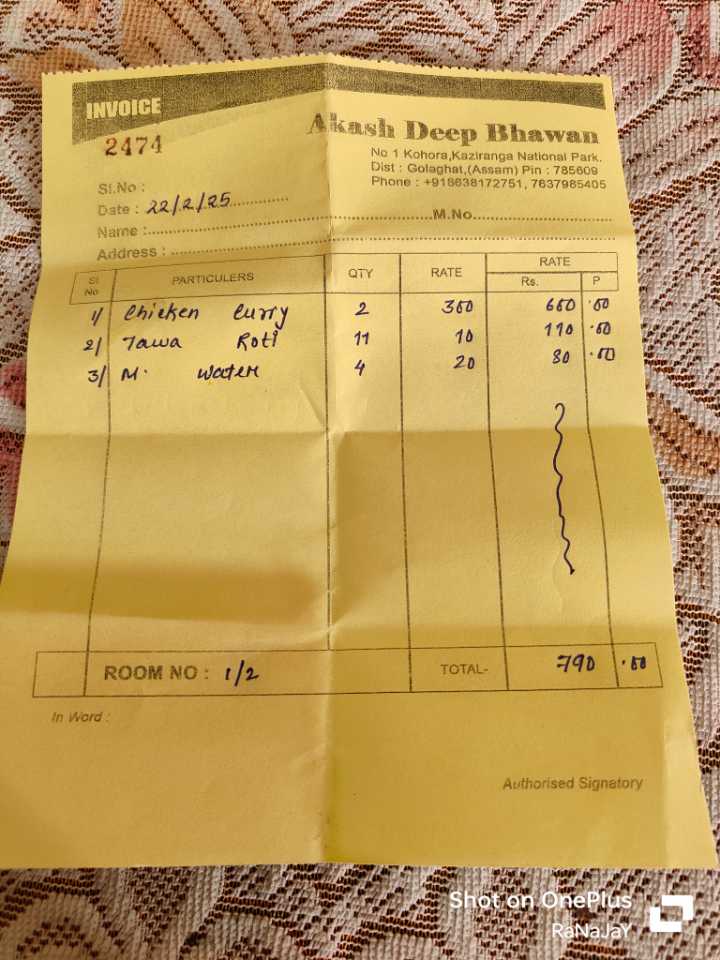 INVOICE
2474
Akash Deep Bhawan
No 1 Kohora,Kaziranga National Park.
Dist : Golaghat,(Assam) Pin : 785609
Phone : +918638172751, 7637985405
Sl.No :
Date : 22/2/25
Name : M.No.
Address :
Sl No PARTICULERS QTY RATE RATE
Rs. P
1/ Chicken Curry 2 300 600 .00
2/ Tawa Roti 11 10 110 .00
3/ M. Water 4 20 80 .00
ROOM NO : 1/2 TOTAL- 790 .00
In Word :
Authorised Signatory
Shot on OnePlus
RaNaJaY